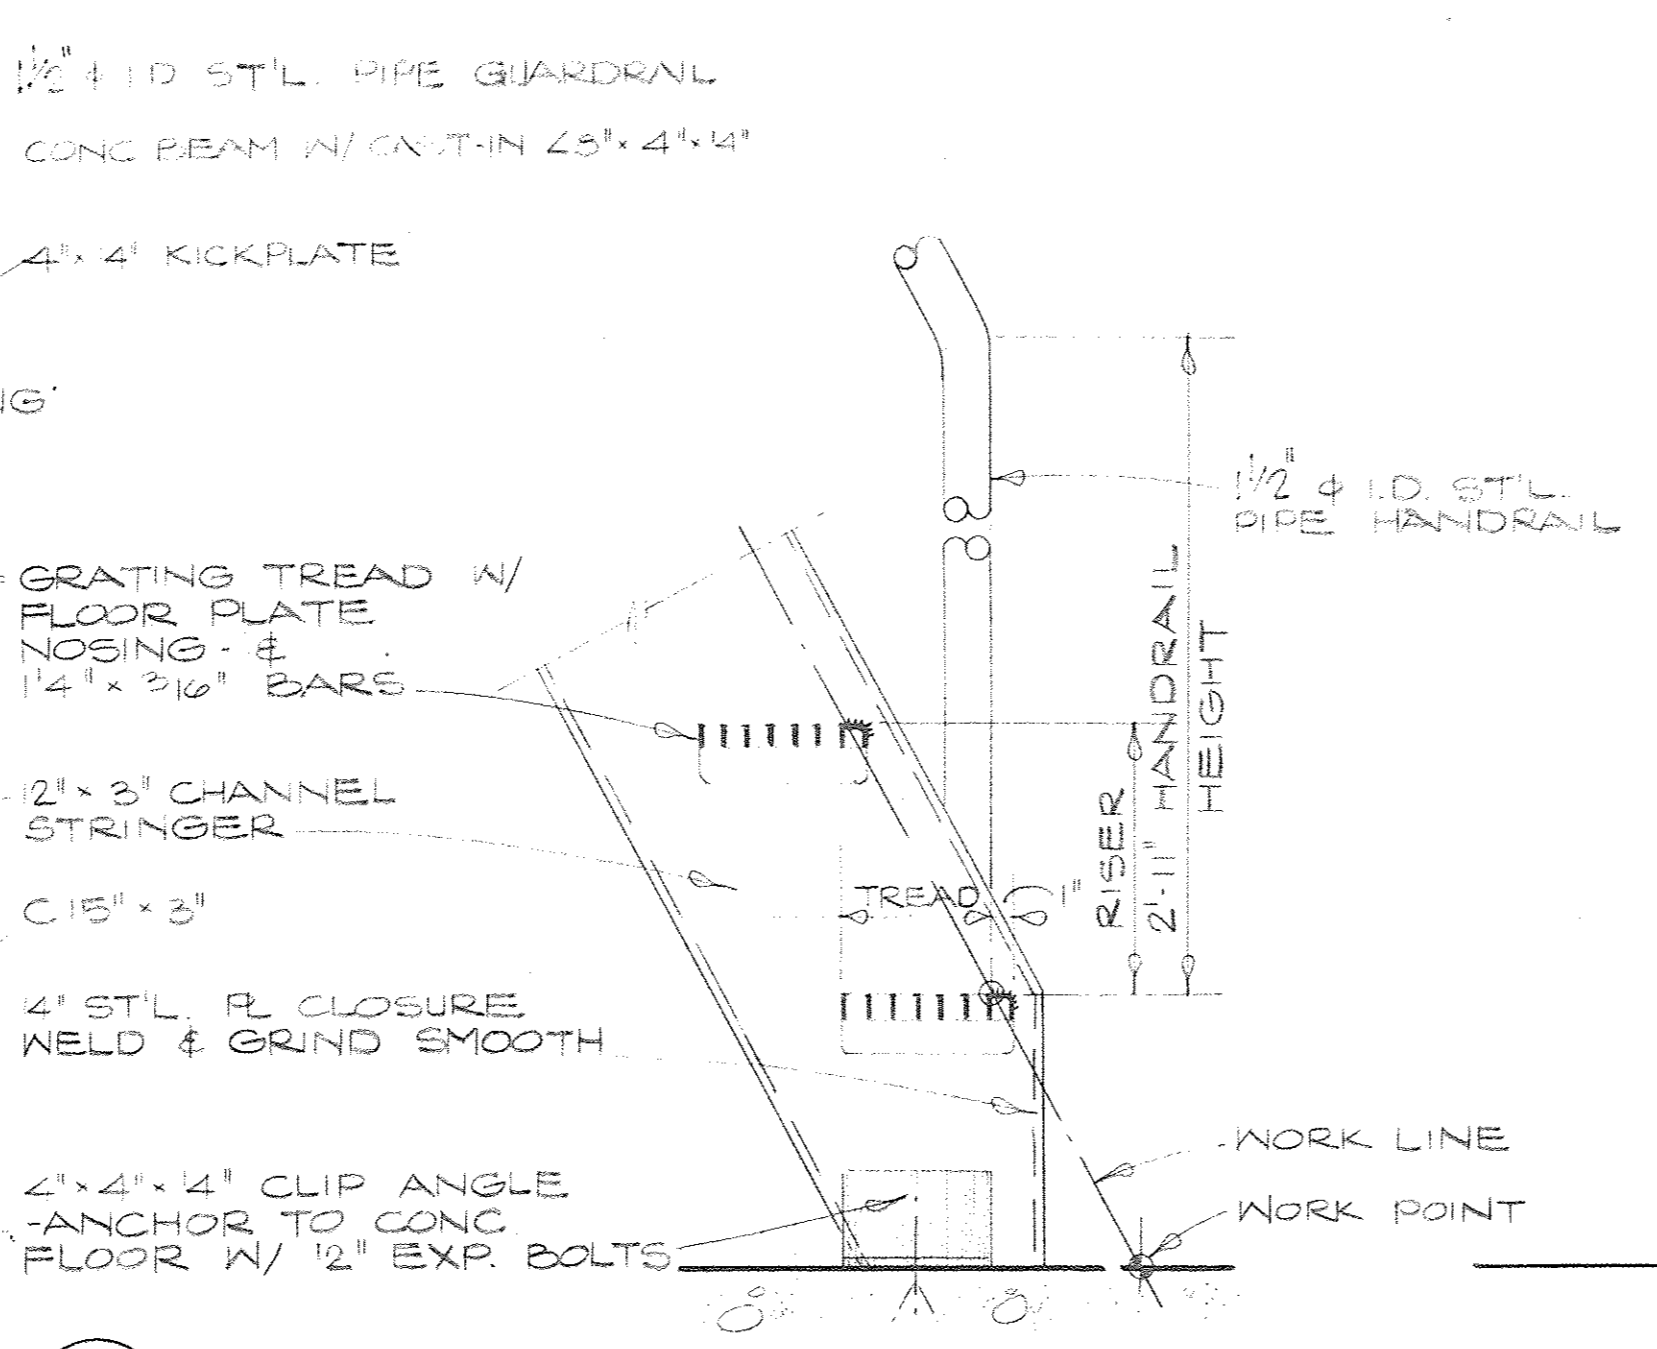 1½" ⌀ I.D ST'L. PIPE GUARDRAIL
CONC BEAM W/ CAST-IN ∠8" x 4" x ¼"
4" x ¼" KICKPLATE
GRATING TREAD W/
FLOOR PLATE
NOSING - &
1¼" x 3/16" BARS
12" x 3" CHANNEL
STRINGER
C 15" x 3"
¼" ST'L. PL CLOSURE
WELD & GRIND SMOOTH
4" x 4" x ¼" CLIP ANGLE
-ANCHOR TO CONC
FLOOR W/ ½" EXP. BOLTS
1½" ⌀ I.D. ST'L.
PIPE HANDRAIL
2'-11" HANDRAIL
HEIGHT
RISER
TREAD
1"
WORK LINE
WORK POINT